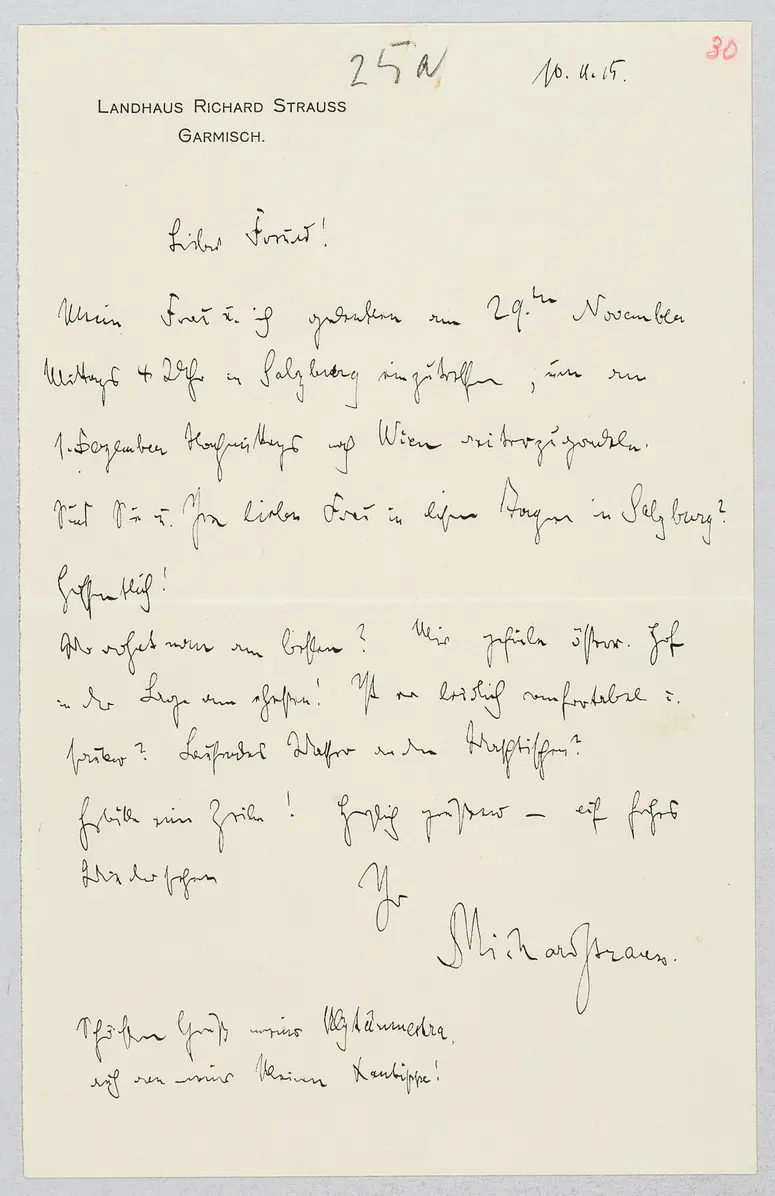 30
25a
10. 11. 15.
LANDHAUS RICHARD STRAUSS
GARMISCH.
Lieber Freund!
Meine Frau u. ich gedenken am 29.ten November
Mittags 4 Uhr in Salzburg einzutreffen, um am
1. Dezember Nachmittags nach Wien weiterzugondeln.
Sind Sie u. Ihre lieben Frau in diesen Tagen in Salzburg?
Hoffentlich!
Wo wohnt man am besten? Mir gefiele österr. Hof
in der Lage am ehesten! Ist er leidlich comfortabel u.
sauber? Laufendes Wasser an den Waschtischen?
Erbitte eine Zeile! Herzlich grüßend – auf frohes
Wiedersehen
Ihr
Richard Strauss.
Schönsten Gruß meiner Klytämnestra,
auch von meiner kleinen Xantippe!